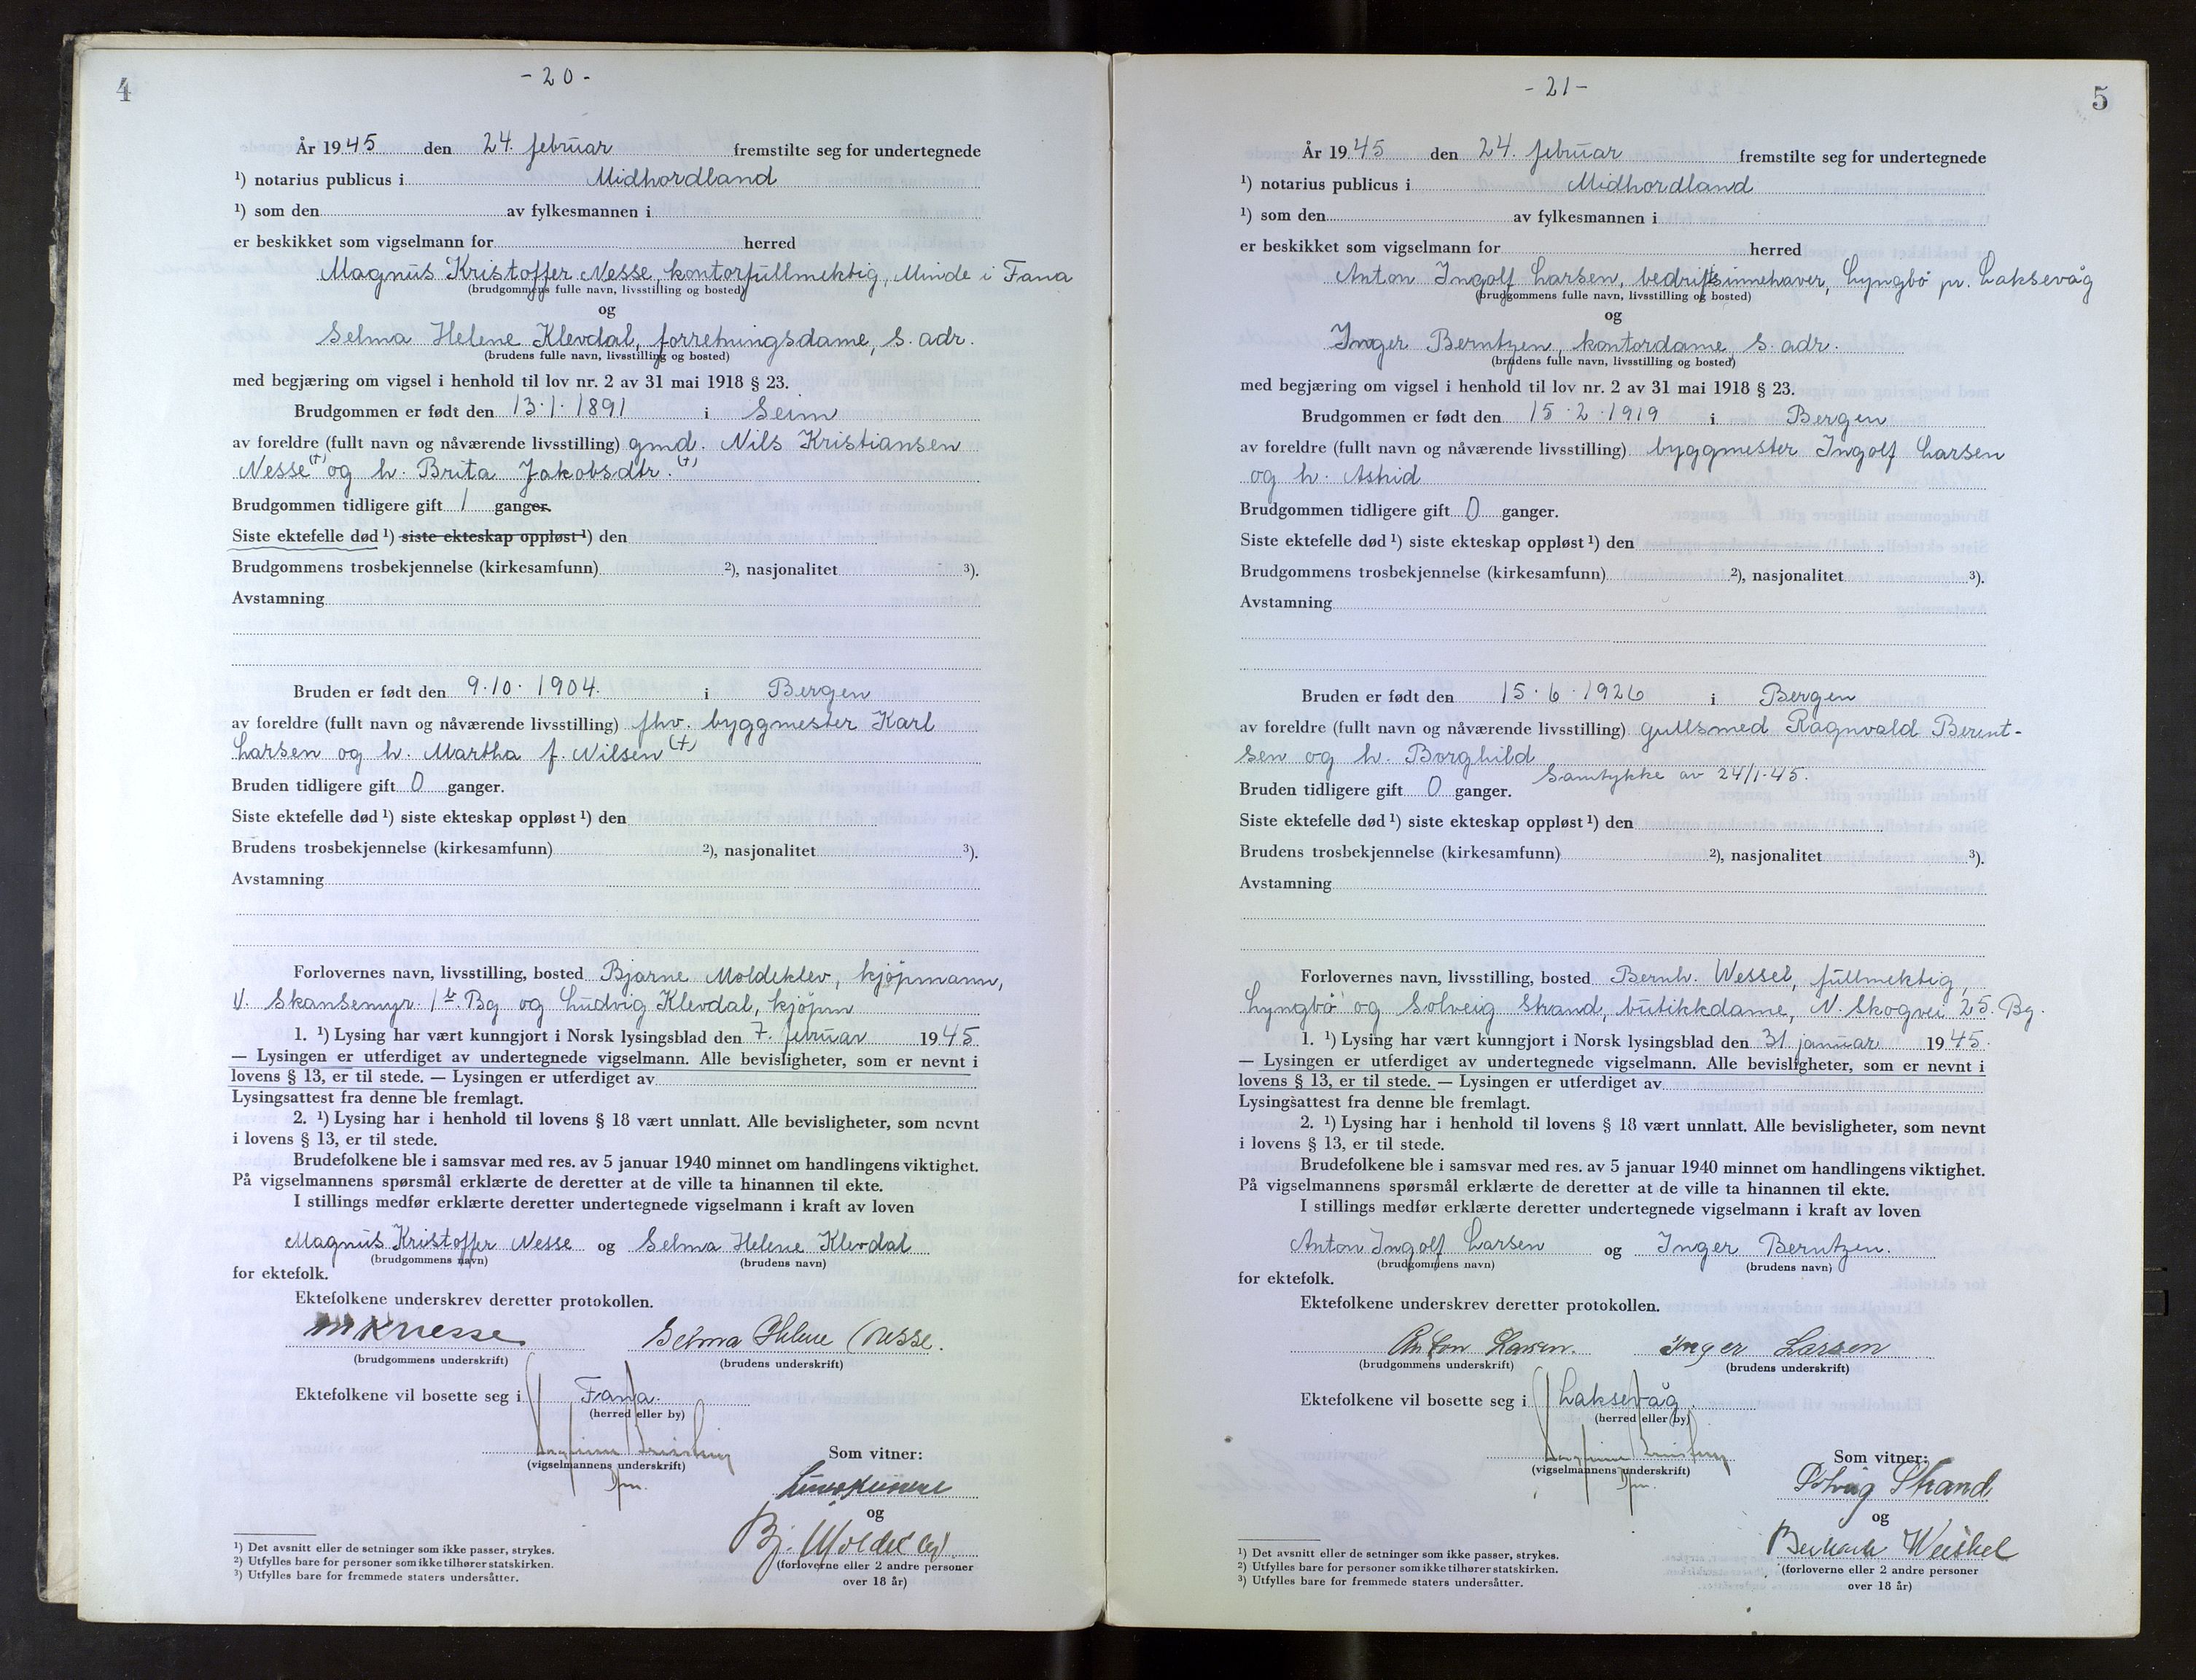 4
- 20 -
År 1945 den 24. februar fremstilte seg for undertegnede
¹) notarius publicus i Midhordland
¹) som den av fylkesmannen i
er beskikket som vigselmann for herred
Magnus Kristoffer Nesse, kontorfullmektig, Minde i Fana
(brudgommens fulle navn, livsstilling og bosted)
og
Selma Helene Klevdal, forretningsdame, s. adr.
(brudens fulle navn, livsstilling og bosted)
med begjæring om vigsel i henhold til lov nr. 2 av 31 mai 1918 § 23.
Brudgommen er født den 13.1.1891 i Seim
av foreldre (fullt navn og nåværende livsstilling) gmd. Nils Kristiansen
Nesse (†) og h. Brita Jakobsdtr. (†)
Brudgommen tidligere gift 1 ganger.
Siste ektefelle død ¹) siste ekteskap oppløst ¹) den
Brudgommens trosbekjennelse (kirkesamfunn) ²), nasjonalitet ³).
Avstamning
Bruden er født den 9.10.1904. i Bergen
av foreldre (fullt navn og nåværende livsstilling) fhv. byggmester Karl
Larsen og h. Martha f. Nilsen (†)
Bruden tidligere gift 0 ganger.
Siste ektefelle død ¹) siste ekteskap oppløst ¹) den
Brudens trosbekjennelse (kirkesamfunn) ²), nasjonalitet ³).
Avstamning
Forlovernes navn, livsstilling, bosted Bjarne Moldeklev, kjøpmann,
V. Skansemyr. 1 b. Bg og Ludvig Klevdal, kjøpm
1. ¹) Lysing har vært kunngjort i Norsk lysingsblad den 7. februar 1945
— Lysingen er utferdiget av undertegnede vigselmann. Alle bevisligheter, som er nevnt i
lovens § 13, er til stede. — Lysingen er utferdiget av
Lysingsattest fra denne ble fremlagt.
2. ¹) Lysing har i henhold til lovens § 18 vært unnlatt. Alle bevisligheter, som nevnt
i lovens § 13, er til stede.
Brudefolkene ble i samsvar med res. av 5 januar 1940 minnet om handlingens viktighet.
På vigselmannens spørsmål erklærte de deretter at de ville ta hinannen til ekte.
I stillings medfør erklærte deretter undertegnede vigselmann i kraft av loven
Magnus Kristoffer Nesse og Selma Helene Klevdal
(brudgommens navn) (brudens navn)
for ektefolk.
Ektefolkene underskrev deretter protokollen.
M K Nesse Selma Helene Nesse.
(brudgommens underskrift) (brudens underskrift)
Ektefolkene vil bosette seg i Fana.
(herred eller by)
Som vitner:
(vigselmannens underskrift)
og
Bj. Moldeklev
(forloverne eller 2 andre personer
over 18 år)
¹) Det avsnitt eller de setninger som ikke passer, strykes.
²) Utfylles bare for personer som ikke tilhører statskirken.
³) Utfylles bare for fremmede staters undersåtter.
5
- 21 -
År 1945 den 24. februar fremstilte seg for undertegnede
¹) notarius publicus i Midhordland
¹) som den av fylkesmannen i
er beskikket som vigselmann for herred
Anton Ingolf Larsen, bedriftsinnehaver, Lyngbø pr. Laksevåg
(brudgommens fulle navn, livsstilling og bosted)
og
Inger Berntzen, kontordame, s. adr.
(brudens fulle navn, livsstilling og bosted)
med begjæring om vigsel i henhold til lov nr. 2 av 31 mai 1918 § 23.
Brudgommen er født den 15.2.1919 i Bergen
av foreldre (fullt navn og nåværende livsstilling) byggmester Ingolf Larsen
og h. Astrid
Brudgommen tidligere gift 0 ganger.
Siste ektefelle død ¹) siste ekteskap oppløst ¹) den
Brudgommens trosbekjennelse (kirkesamfunn) ²), nasjonalitet ³).
Avstamning
Bruden er født den 15.6.1926 i Bergen
av foreldre (fullt navn og nåværende livsstilling) gullsmed Ragnvald Bernt-
sen og h. Borghild
Samtykke av 24/1-45.
Bruden tidligere gift 0 ganger.
Siste ektefelle død ¹) siste ekteskap oppløst ¹) den
Brudens trosbekjennelse (kirkesamfunn) ²), nasjonalitet ³).
Avstamning
Forlovernes navn, livsstilling, bosted Bernh. Wessel, fullmektig,
Lyngbø og Solveig Strand, butikkdame, N. Skogvei 25. Bg.
1. ¹) Lysing har vært kunngjort i Norsk lysingsblad den 31 januar 1945.
— Lysingen er utferdiget av undertegnede vigselmann. Alle bevisligheter, som er nevnt i
lovens § 13, er til stede. — Lysingen er utferdiget av
Lysingsattest fra denne ble fremlagt.
2. ¹) Lysing har i henhold til lovens § 18 vært unnlatt. Alle bevisligheter, som nevnt
i lovens § 13, er til stede.
Brudefolkene ble i samsvar med res. av 5 januar 1940 minnet om handlingens viktighet.
På vigselmannens spørsmål erklærte de deretter at de ville ta hinannen til ekte.
I stillings medfør erklærte deretter undertegnede vigselmann i kraft av loven
Anton Ingolf Larsen og Inger Berntzen.
(brudgommens navn) (brudens navn)
for ektefolk.
Ektefolkene underskrev deretter protokollen.
Anton Larsen. Inger Larsen
(brudgommens underskrift) (brudens underskrift)
Ektefolkene vil bosette seg i Laksevåg.
(herred eller by)
Som vitner:
(vigselmannens underskrift)
Strand
og
(forloverne eller 2 andre personer
over 18 år)
¹) Det avsnitt eller de setninger som ikke passer, strykes.
²) Utfylles bare for personer som ikke tilhører statskirken.
³) Utfylles bare for fremmede staters undersåtter.